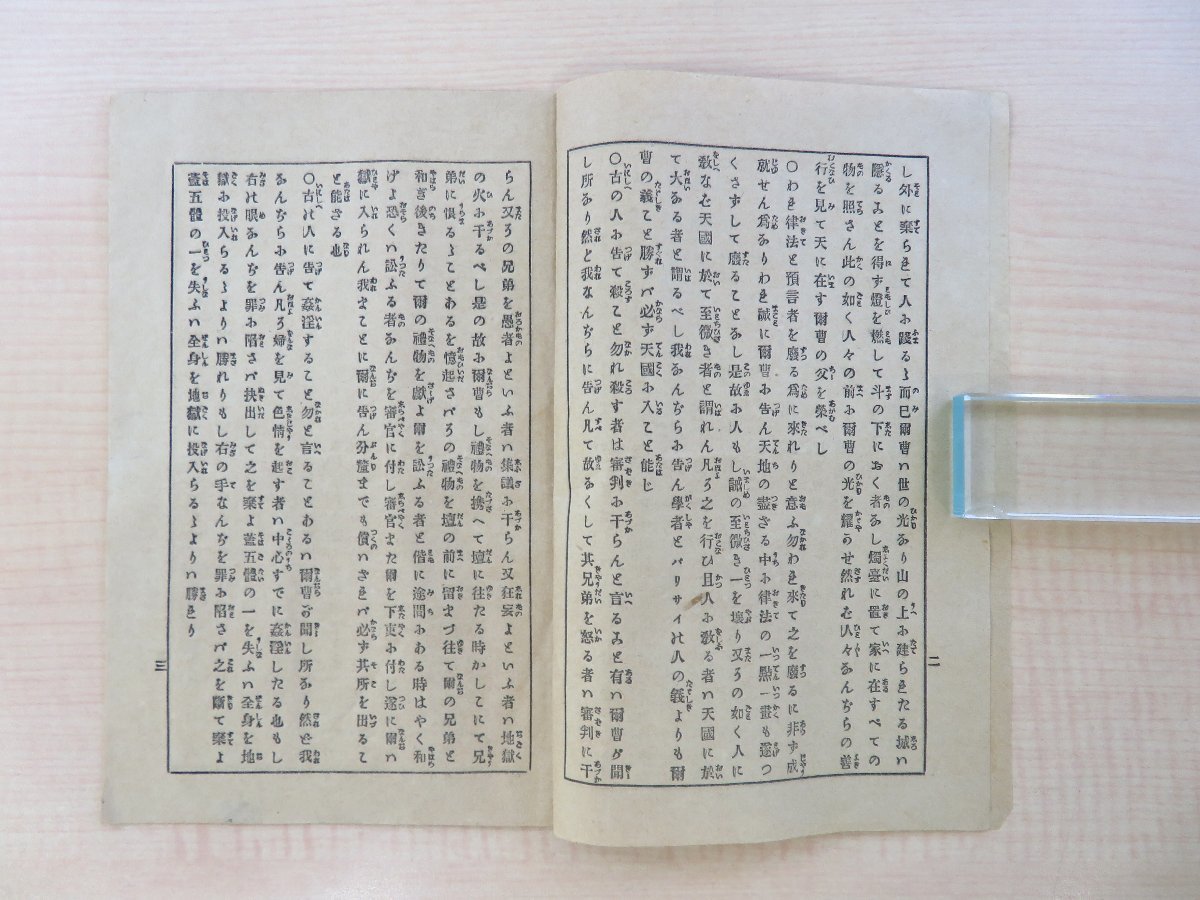 し外に棄られて人に踐るゝ而已爾曹ハ世の光なり山の上に建られたる城ハ
隱るゝことを得ず燈を燃して斗の下におく者なし燭臺に置て家に在すべての
物を照さん此の如く人々の前に爾曹の光を耀かせ然れば人々なんぢらの善
行を見て天に在す爾曹の父を榮べし
〇われ律法と預言者を廢る爲に來れりと意ふ勿われ來て之を廢るに非ず成
就せん爲なりわれ誠に爾曹に告ん天地の盡ざる中に律法の一點一畫も遂つ
くさずして廢ることなし是故に人もし誡の至微き一を壞り又その如く人に
敎なば天國に於て至微き者と謂れん凡そ之を行ひ且人に敎る者ハ天國に於
て大なる者と謂るべし我なんぢらに告ん學者とパリサイの人の義よりも爾
曹の義こと勝ずバ必ず天國に入こと能じ
〇古の人に告て殺こと勿れ殺す者は審判に干らんと言ることと有ハ爾曹が聞
し所なり然ど我なんぢらに告ん凡て故なくして其兄弟を怒る者ハ審判に干
二
らん又その兄弟を愚者よといふ者ハ集議に干らん又狂妄よといふ者ハ地獄
の火に干るべし是の故に爾曹もし禮物を携へて壇に往たる時かしこにて兄
弟に恨るゝことあるを憶起さバその禮物を壇の前に留まづ往て爾の兄弟と
和ぎ後きたりて爾の禮物を獻よ爾を訟ふる者と偕に途間にある時はやく和
げよ恐くハ訟ふる者なんぢを審官に付し審官また爾を下吏に付し遂に爾ハ
獄に入られん我まことに爾に告ん分釐までも償ハざれバ必ず其所を出るこ
と能ざる也
〇古の人に告て姦淫すること勿と言ることあるハ爾曹が聞し所なり然ど我
なんぢらに告ん凡そ婦を見て色情を起す者ハ中心すでに姦淫したる也もし
右の眼なんぢを罪に陷さバ抉出して之を棄よ蓋五體の一を失ふハ全身を地
獄に投入らるゝよりハ勝れりもし右の手なんぢを罪に陷さバ之を斷て棄よ
蓋五體の一を失ふハ全身を地獄に投入らるゝよりハ勝れり
三